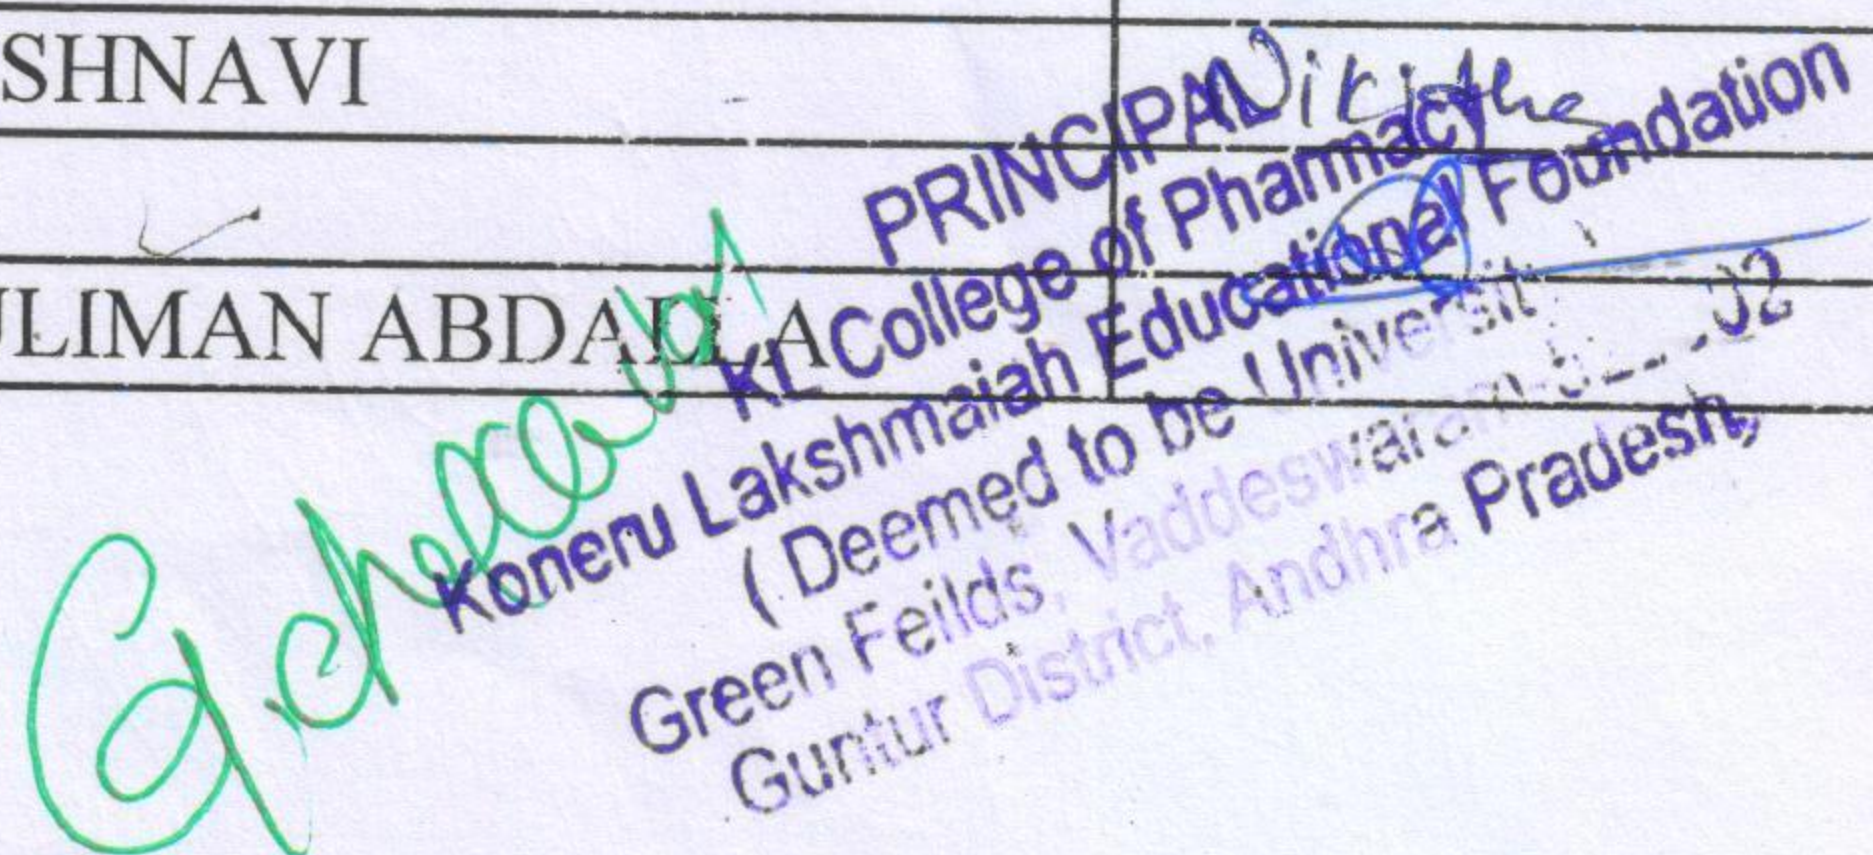 SHNAVI
ULIMAN ABDALLA
PRINCIPAL
KL College of Pharmacy
Koneru Lakshmaiah Educational Foundation
( Deemed to be Universit
Green Feilds, Vaddeswaram
Guntur District, Andhra Pradesh,